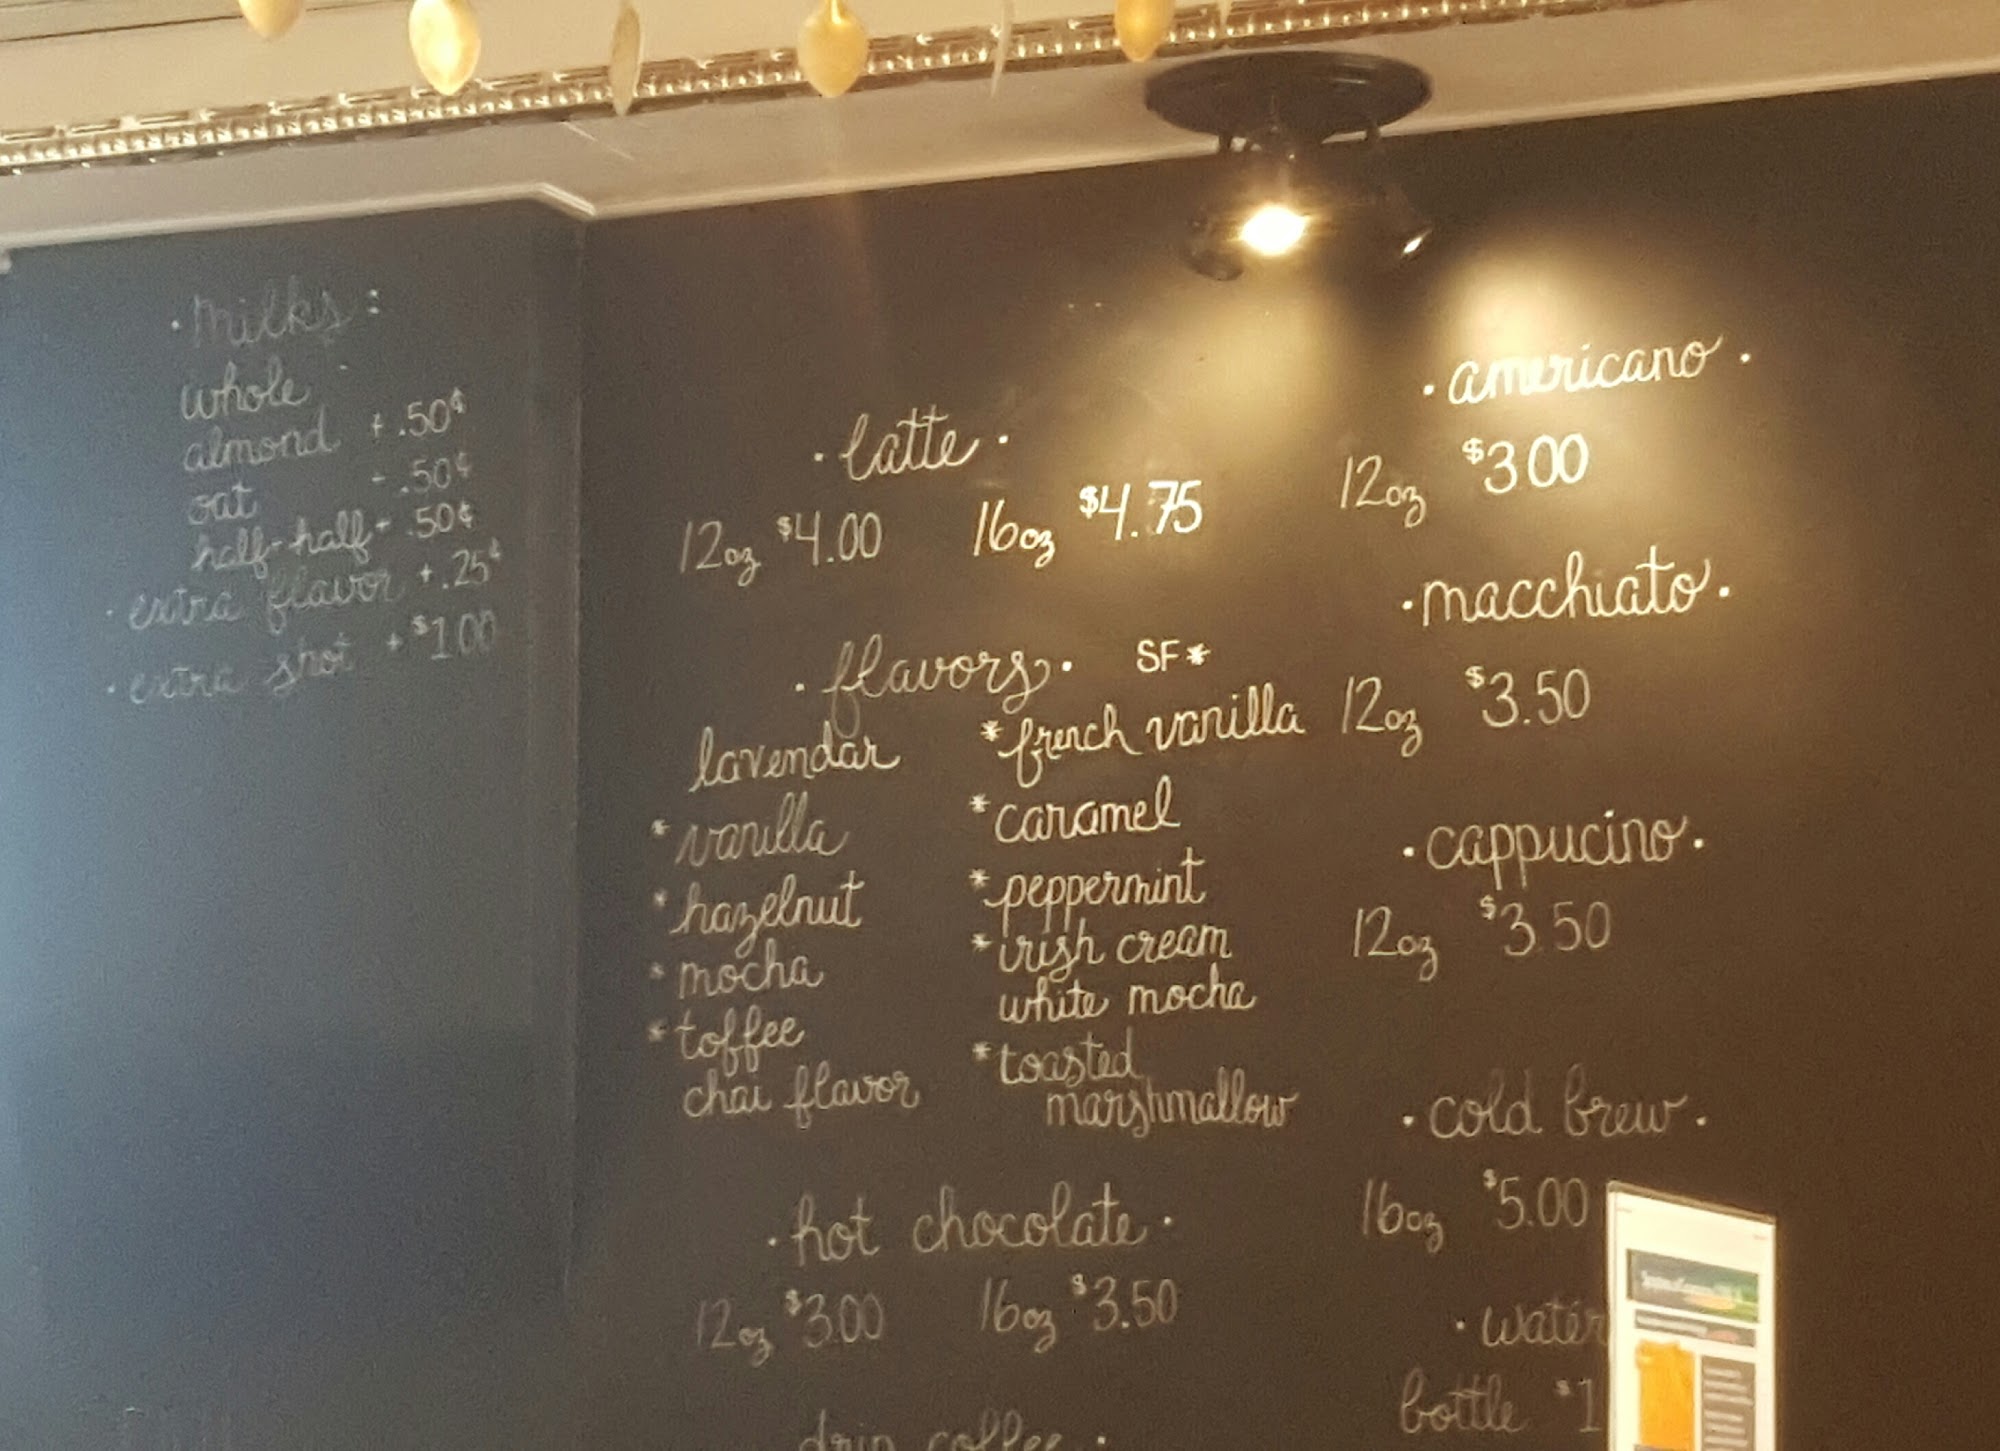 · milks :
whole
almond + .50¢
oat - .50¢
half-half - .50¢
· extra flavor + .25¢
· extra shot + $1.00
· latte ·
12oz $4.00 16oz $4.75
· flavors · SF*
lavendar
* vanilla
* hazelnut
* mocha
* toffee
chai flavor
* french vanilla
* caramel
* peppermint
* irish cream
white mocha
* toasted
marshmallow
· hot chocolate ·
12oz $3.00 16oz $3.50
drip coffee ·
· americano ·
12oz $3.00
· macchiato ·
12oz $3.50
· cappucino ·
12oz $3.50
· cold brew ·
16oz $5.00
· water
bottle $1